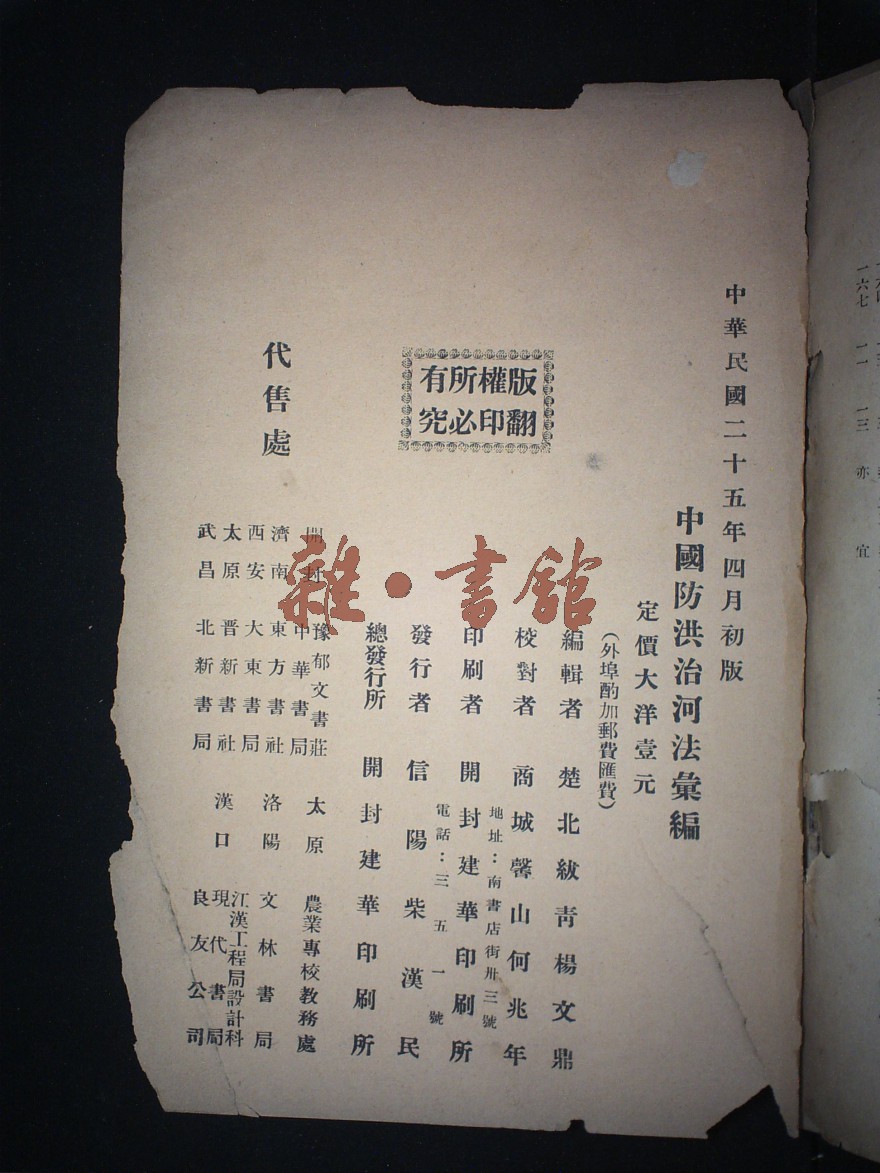 中華民國二十五年四月初版
中國防洪治河法彙編
定價大洋壹元
(外埠酌加郵費匯費)
編輯者 楚北紱青楊文鼎
校對者 商城馨山何兆年
地址：南書店街卅三號
印刷者 開封建華印刷所
電話：三五一號
發行者 信陽柴漢民
總發行所 開封建華印刷所
版權所有
翻印必究
代售處
開封 豫郁文書莊
中華書局
濟南 東方書社
西安 大東書局
太原 晋新書社
武昌 北新書局
太原 農業專校教務處
洛陽 文林書局
漢口 江漢工程局設計科
現代書局
良友公司
雜·書館
一六七 一一 一三 亦 宜